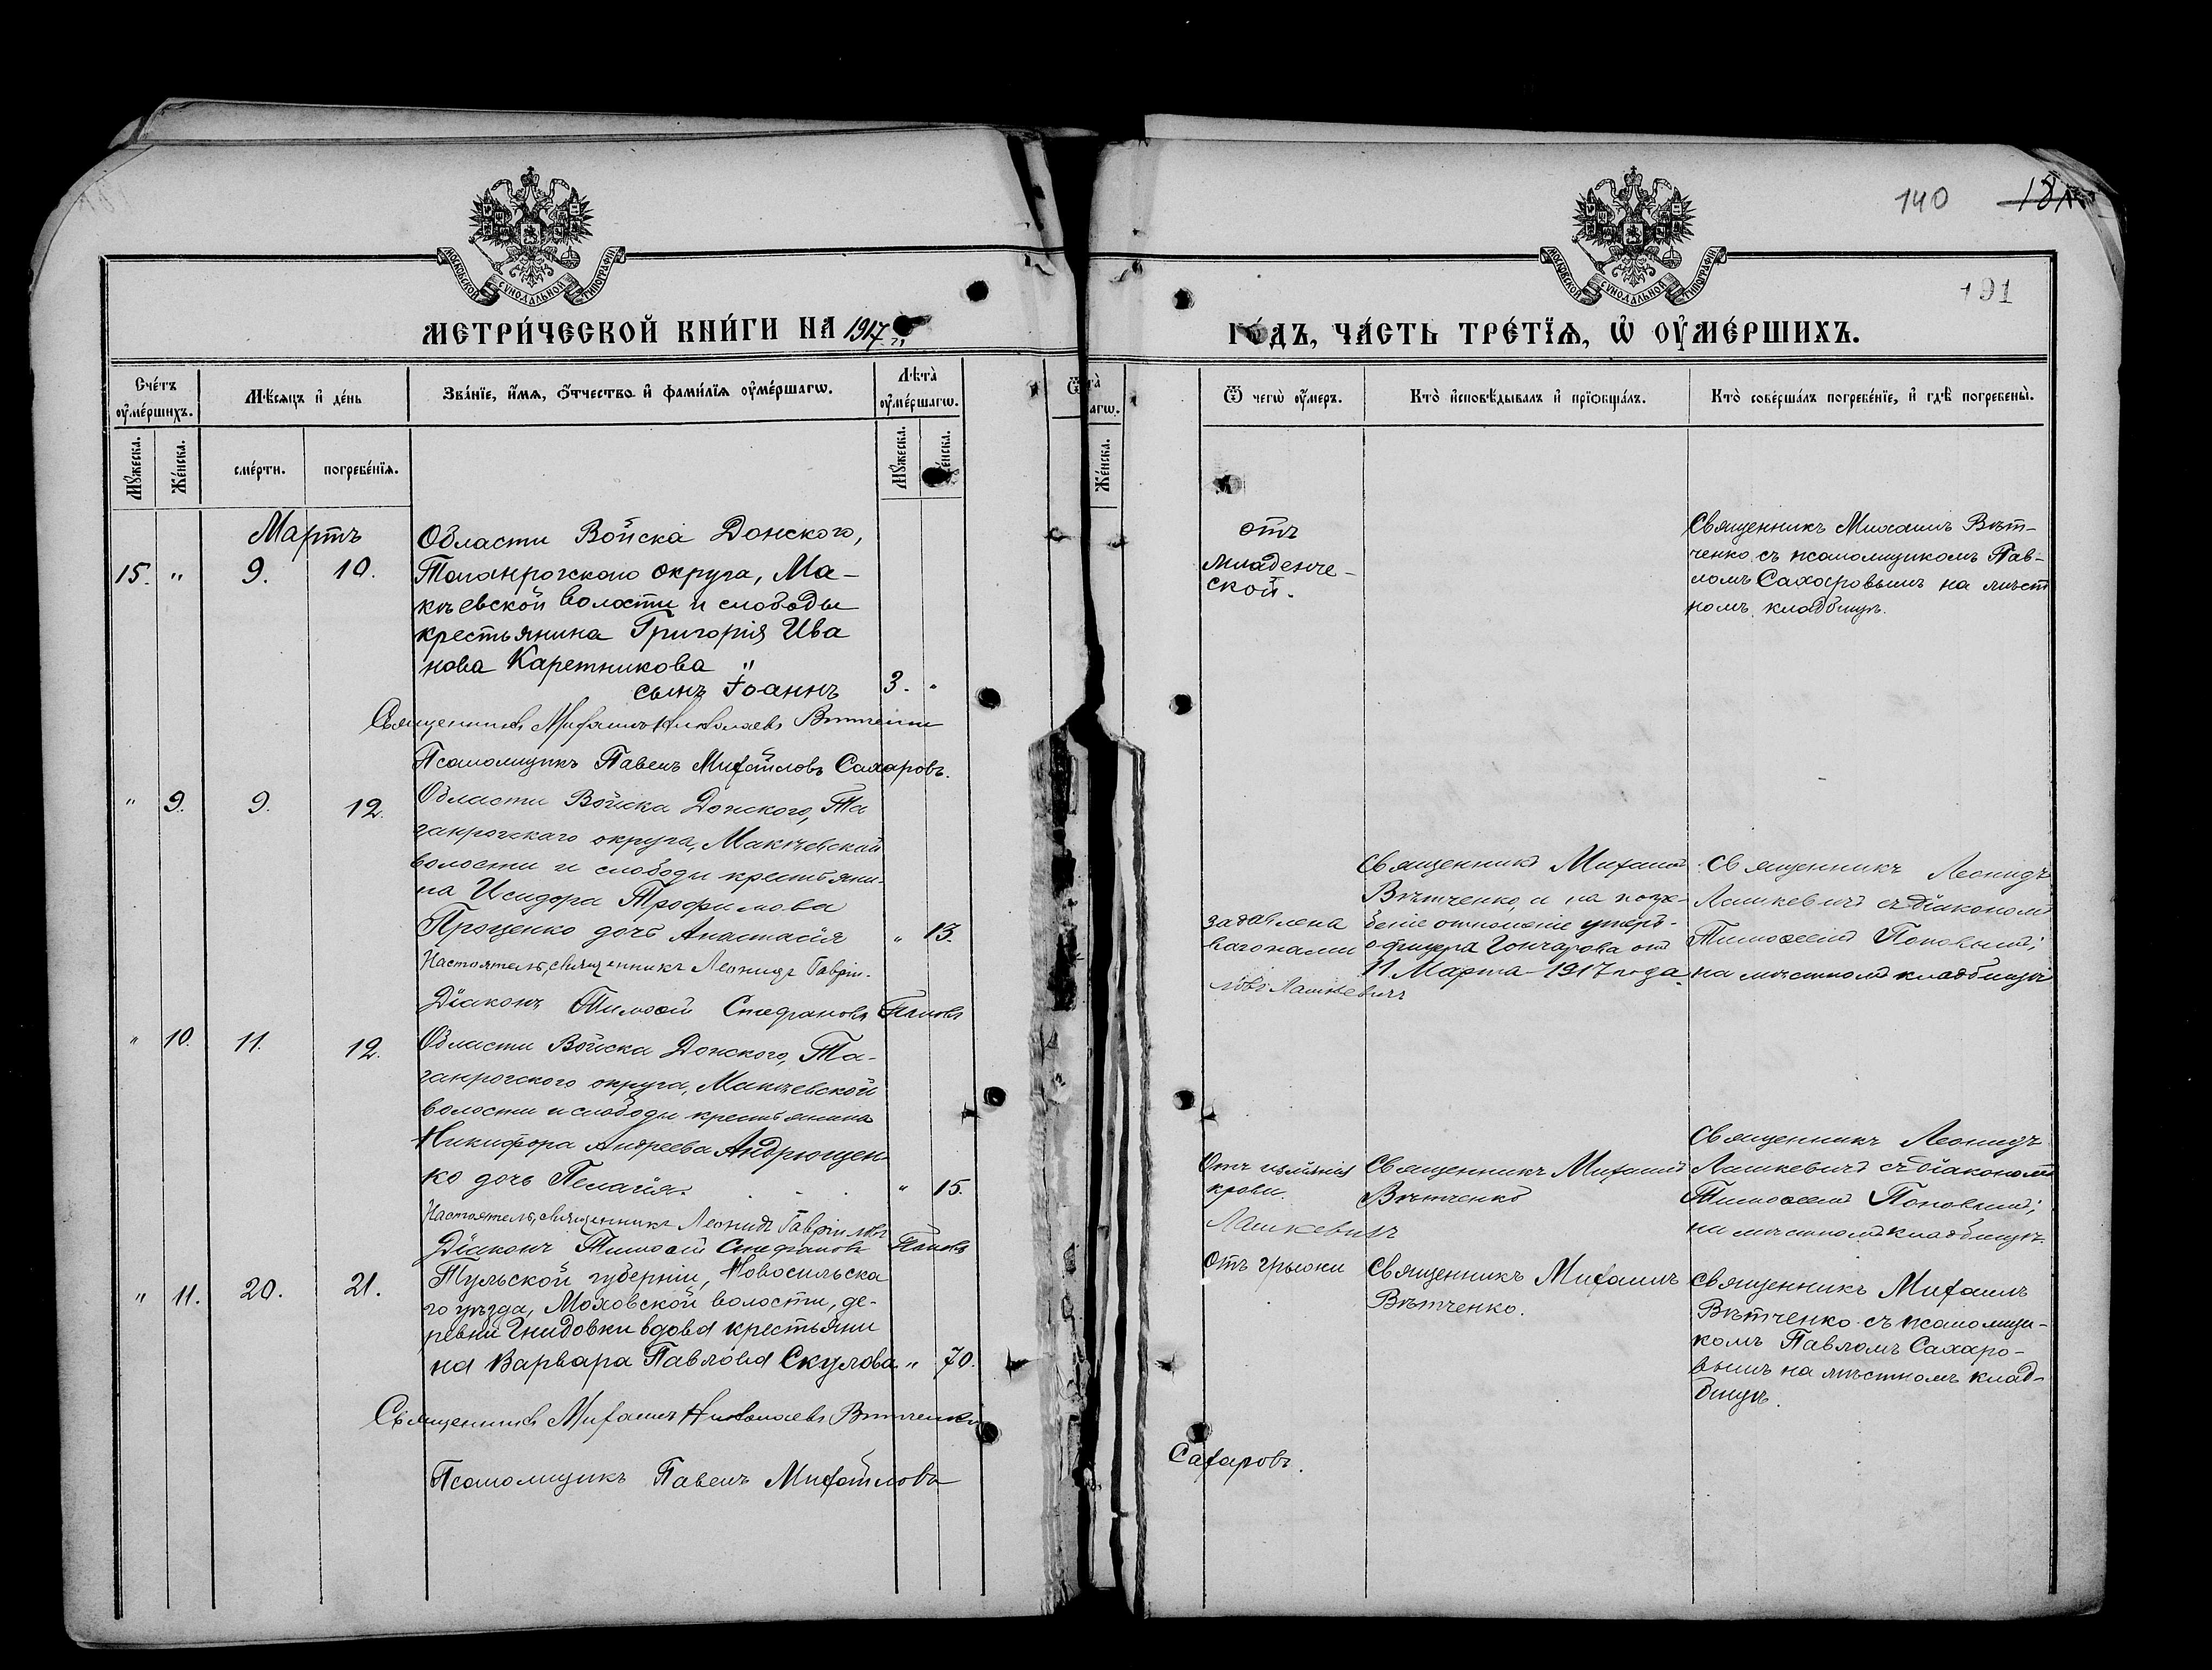 140 181
191
МОСКОВСКОЙ СѴНОДАЛЬНОЙ ТИПОГРАФІИ
МОСКОВСКОЙ СѴНОДАЛЬНОЙ ТИПОГРАФІИ
МЕТРИ́ЧЕСКОЙ КНИ́ГИ НА 1917
ГО́ДЪ, ЧА́СТЬ ТРЕ́ТЇѦ, Ѡ҆ ОУ҆МЕ́РШИХЪ.
Сче́тъ оу҆ме́ршихъ.
Мѣ́сяцъ и҆ де́нь
Зва́нїе, и҆́мѧ, ѻ҆́тчество и҆ фами́лїѧ оу҆ме́ршагѡ.
Лѣ́та̀ оу҆ме́ршагѡ.
Ѿ чегѡ̀ оу҆́меръ.
Кто̀ и҆сповѣ́дывалъ и҆ прїѡбща́лъ.
Кто̀ соверша́лъ погребе́нїе, и҆ гдѣ̀ погребены̀.
Мꙋ́жеска.
Же́нска.
сме́рти.
погребе́нїѧ.
Мꙋ́жеска.
Же́нска.
Же́нска.
Мартъ
15. " 9. 10.
Области Войска Донского,
Таганрогскаго округа, Ма-
кѣевской волости и слободы
крестьянина Григорія Ива
нова Каретникова "
сынъ Іоаннъ 3. "
отъ
младенче-
ской.
Священникъ Михаилъ Вѣт-
ченко съ псаломщикомъ Пав-
ломъ Сахаровымъ на мѣст
номъ кладбищѣ.
Священникъ Михаилъ Николаевъ Вѣтченко
Псаломщикъ Павелъ Михайловъ Сахаровъ.
" 9. 9. 12.
Области Войска Донского, Та
ганрогскаго округа, Макѣевской
волости и слободы крестьяни-
на Исидора Трофимова
Проценко дочь Анастасія " 13.
задавлена
вагонами
Священникъ Михаилъ
Вѣтченко, и на погре-
беніе отношеніе
офицера Гончарова отъ
11 Марта 1917 года.
Священникъ Леонидъ
Лашкевичъ съ діакономъ
Тимоѳеемъ Поповымъ;
на мѣстномъ кладбищѣ
Настоятель, священникъ Леонидъ Гавріи-
ловъ Лашкевичъ
Діаконъ Тимоѳей Стефановъ Поповъ
" 10. 11. 12.
Области Войска Донского, Та-
ганрогского округа, Макѣевской
волости и слободы крестьянина
Никифора Андреева Андрющен-
ко дочь Пелагія. " 15.
Отъ гніенія
крови.
Священникъ Михаилъ
Вѣтченко
Священникъ Леонидъ
Лашкевичъ съ діакономъ
Тимоѳеемъ Поповымъ;
на мѣстномъ кладбищѣ.
Настоятель, священникъ Леонидъ Гавріиловъ
Лашкевичъ
Діаконъ Тимоѳей Стефановъ Поповъ
" 11. 20. 21.
Тульской губерніи, Новосильска
го уѣзда, Моховской волости, де-
ревни Гнидовки вдова крестьяни
на Варвара Павлова Скулова " 70.
Отъ грыжи
Священникъ Михаилъ
Вѣтченко.
Священникъ Михаилъ
Вѣтченко съ псаломщи-
комъ Павломъ Сахаро-
вымъ на мѣстномъ клад-
бищѣ.
Священникъ Михаилъ Николаевъ Вѣтченко
Псаломщикъ Павелъ Михайловъ
Сахаровъ.